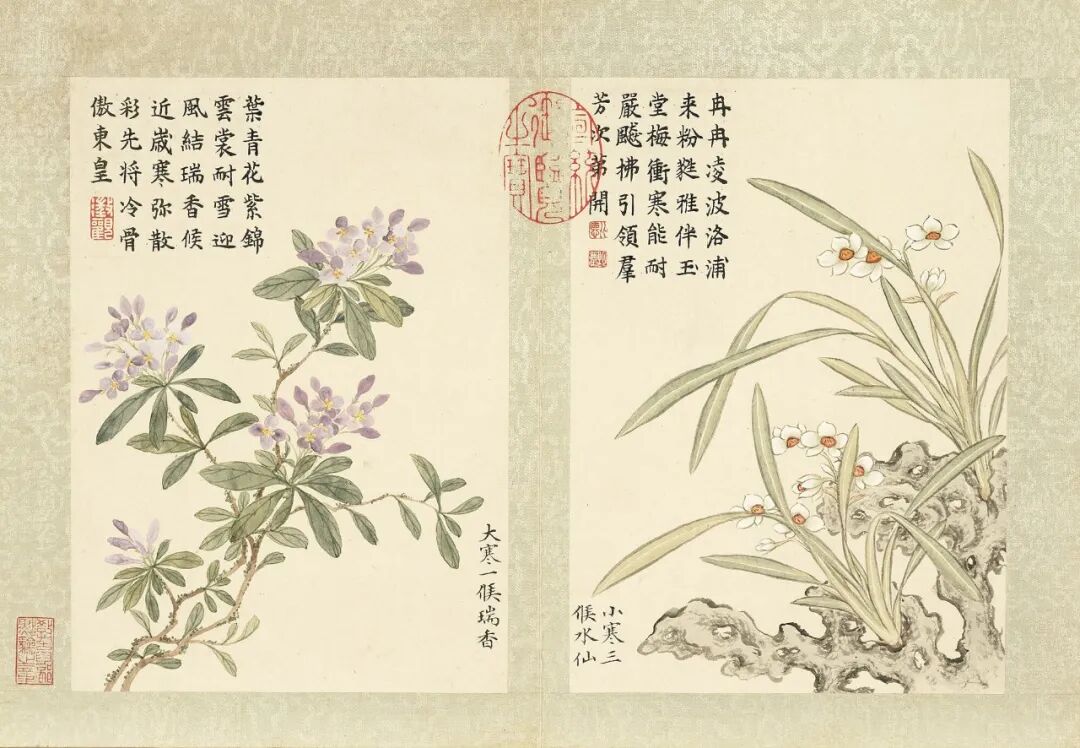 冉冉凌波洛浦
来粉雅伴玉
堂梅衝寒能耐
嚴飈拂引領羣
芳次第開
小寒三
候水仙
宣統
御覽
之寶
葉青花紫錦
雲裳耐雪迎
風結瑞香候
近歲寒弥散
彩先将冷骨
傲東皇
大寒一候瑞香